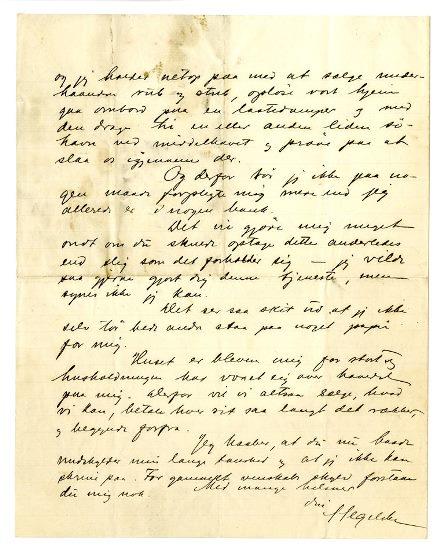 og jeg holder netop paa med at sælge under-
haanden rub og stub, opløse vort hjem
gaa ombord paa en lastedamper og med
den drage til en eller anden liden sø-
havn ved middelhavet og prøve paa at
slaa os igjennem der.
Og derfor tør jeg ikke paa no-
gen maade forpligte mig mere end jeg
allerede er i nogen bank.
Det vil gjøre mig meget
ondt om du skulde opfatte dette anderledes
end slig som det forholder sig — jeg vilde
saa gjerne gjort dig denne tjeneste, men
synes ikke jeg kan.
Det ser saa skit ud at jeg ikke
selv tør bede andre staa paa noget papir
for mig.
Huset er bleven mig for stort og
husholdningen har voxet sig over hovedet
paa mig, derfor vil vi altsaa sælge, hvad
vi kan, betale hver sit saa langt det rækker,
og begynde forfra.
Jeg haaber, at du nu baade
undskylder min lange taushed og at jeg ikke kan
skrive paa. For gammelt venskabs skyld forstaar
du mig nok. Med mange hilsener
din